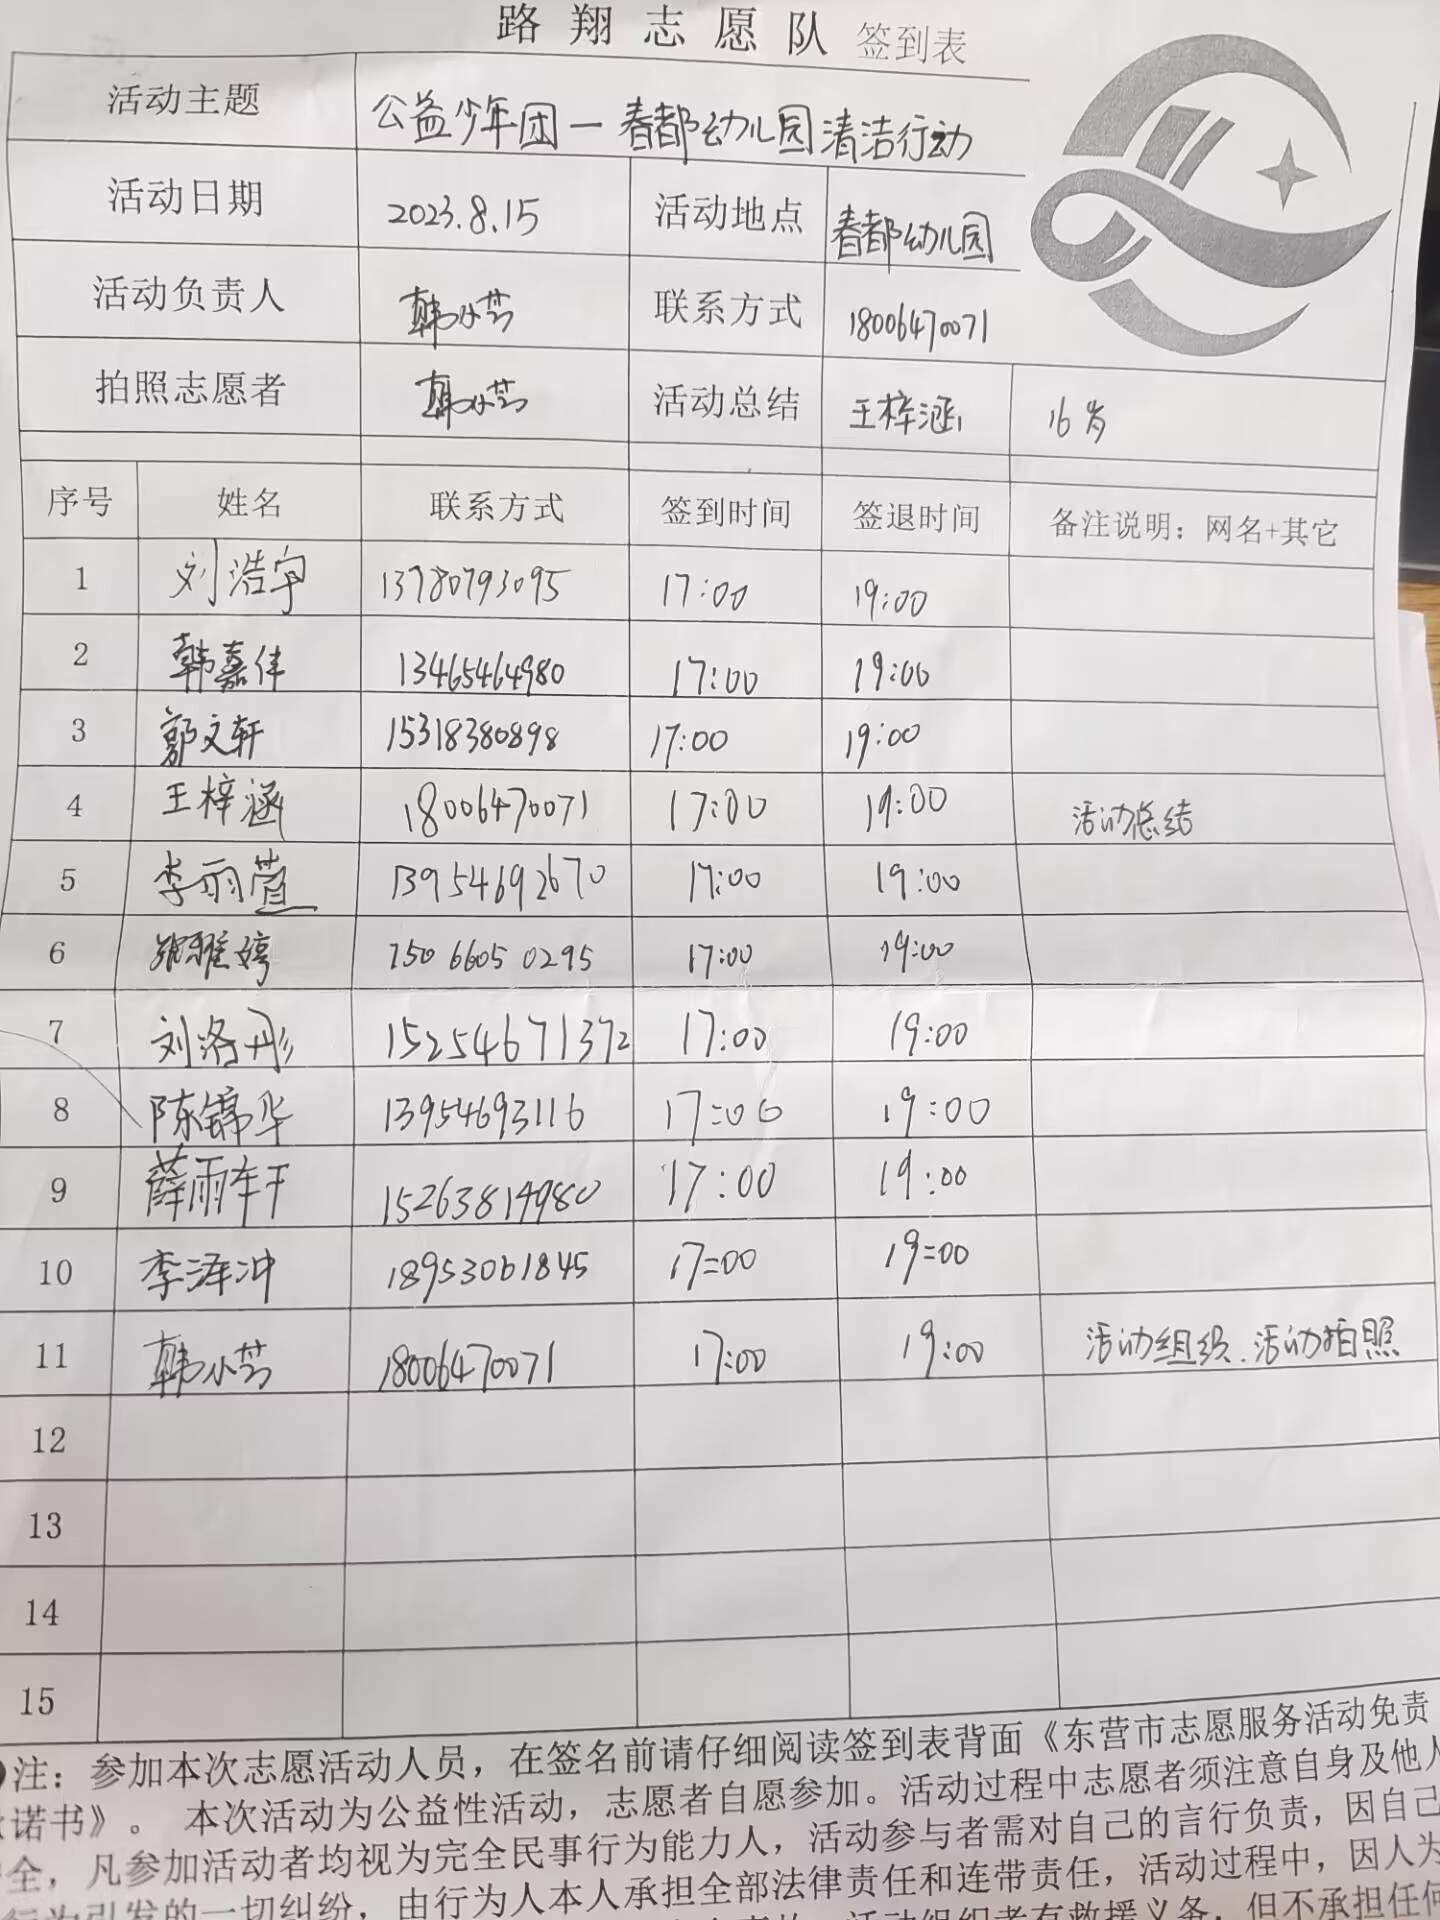 路翔志愿队 签到表
活动主题 公益少年团—春都幼儿园清洁行动
活动日期 2023.8.15 活动地点 春都幼儿园
活动负责人 韩小芸 联系方式 18006470071
拍照志愿者 韩小芸 活动总结 王梓涵 16岁
序号 姓名 联系方式 签到时间 签退时间 备注说明：网名+其它
1 刘浩宇 13780793095 17:00 19:00
2 韩嘉伟 13465464980 17:00 19:00
3 郭文轩 15318380898 17:00 19:00
4 王梓涵 18006470071 17:00 19:00 活动总结
5 李雨萱 13954692670 17:00 19:00
6 雅婷 15066050295 17:00 19:00
7 刘洛彤 15254671372 17:00 19:00
8 陈锦华 13954693116 17:00 19:00
9 薛雨轩 15263814980 17:00 19:00
10 李泽冲 18953061845 17=00 19=00
11 韩小芸 18006470071 17:00 19:00 活动组织.活动拍照
12
13
14
15
注：参加本次志愿活动人员，在签名前请仔细阅读签到表背面《东营市志愿服务活动免责
诺书》。 本次活动为公益性活动，志愿者自愿参加。活动过程中志愿者须注意自身及他人
全，凡参加活动者均视为完全民事行为能力人，活动参与者需对自己的言行负责，因自己
行为引发的一切纠纷，由行为人本人承担全部法律责任和连带责任，活动过程中，因人为
活动组织者有救援义务，但不承担任何